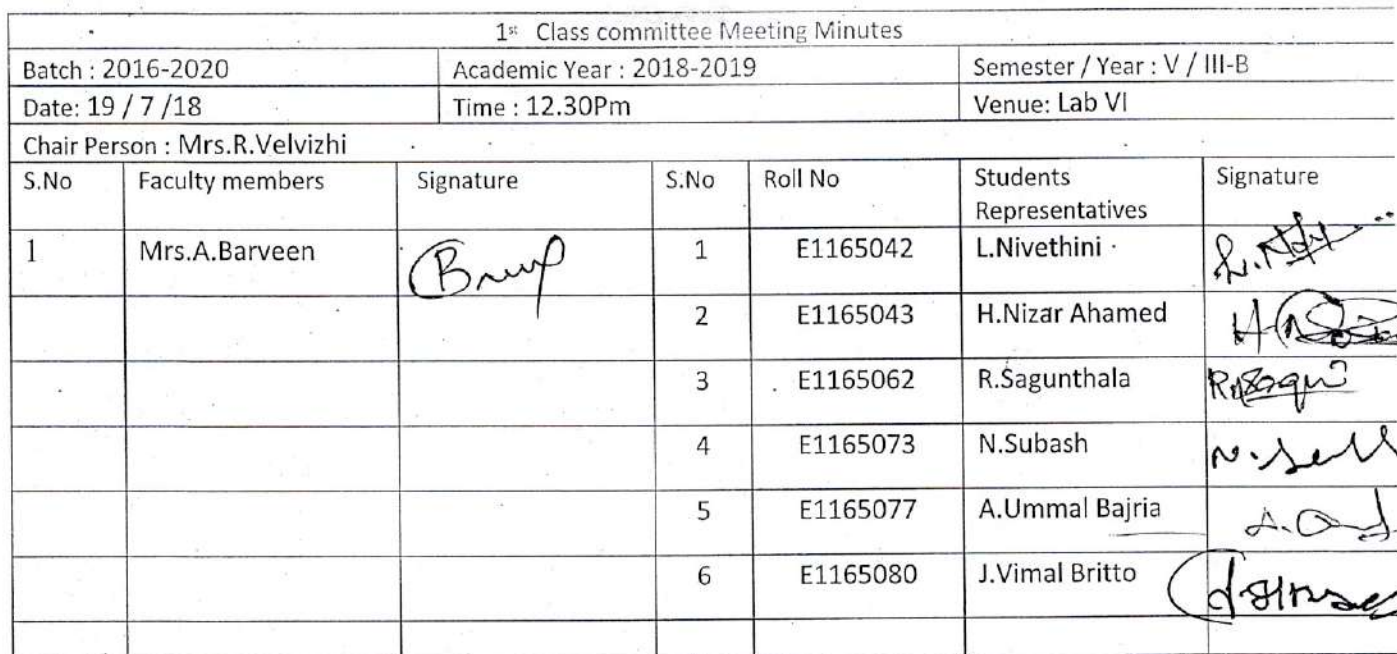 1st Class committee Meeting Minutes
Batch : 2016-2020 Academic Year : 2018-2019 Semester / Year : V / III-B
Date: 19 / 7 /18 Time : 12.30Pm Venue: Lab VI
Chair Person : Mrs.R.Velvizhi
S.No Faculty members Signature S.No Roll No Students Representatives Signature
1 Mrs.A.Barveen 1 E1165042 L.Nivethini
2 E1165043 H.Nizar Ahamed
3 E1165062 R.Sagunthala
4 E1165073 N.Subash
5 E1165077 A.Ummal Bajria
6 E1165080 J.Vimal Britto